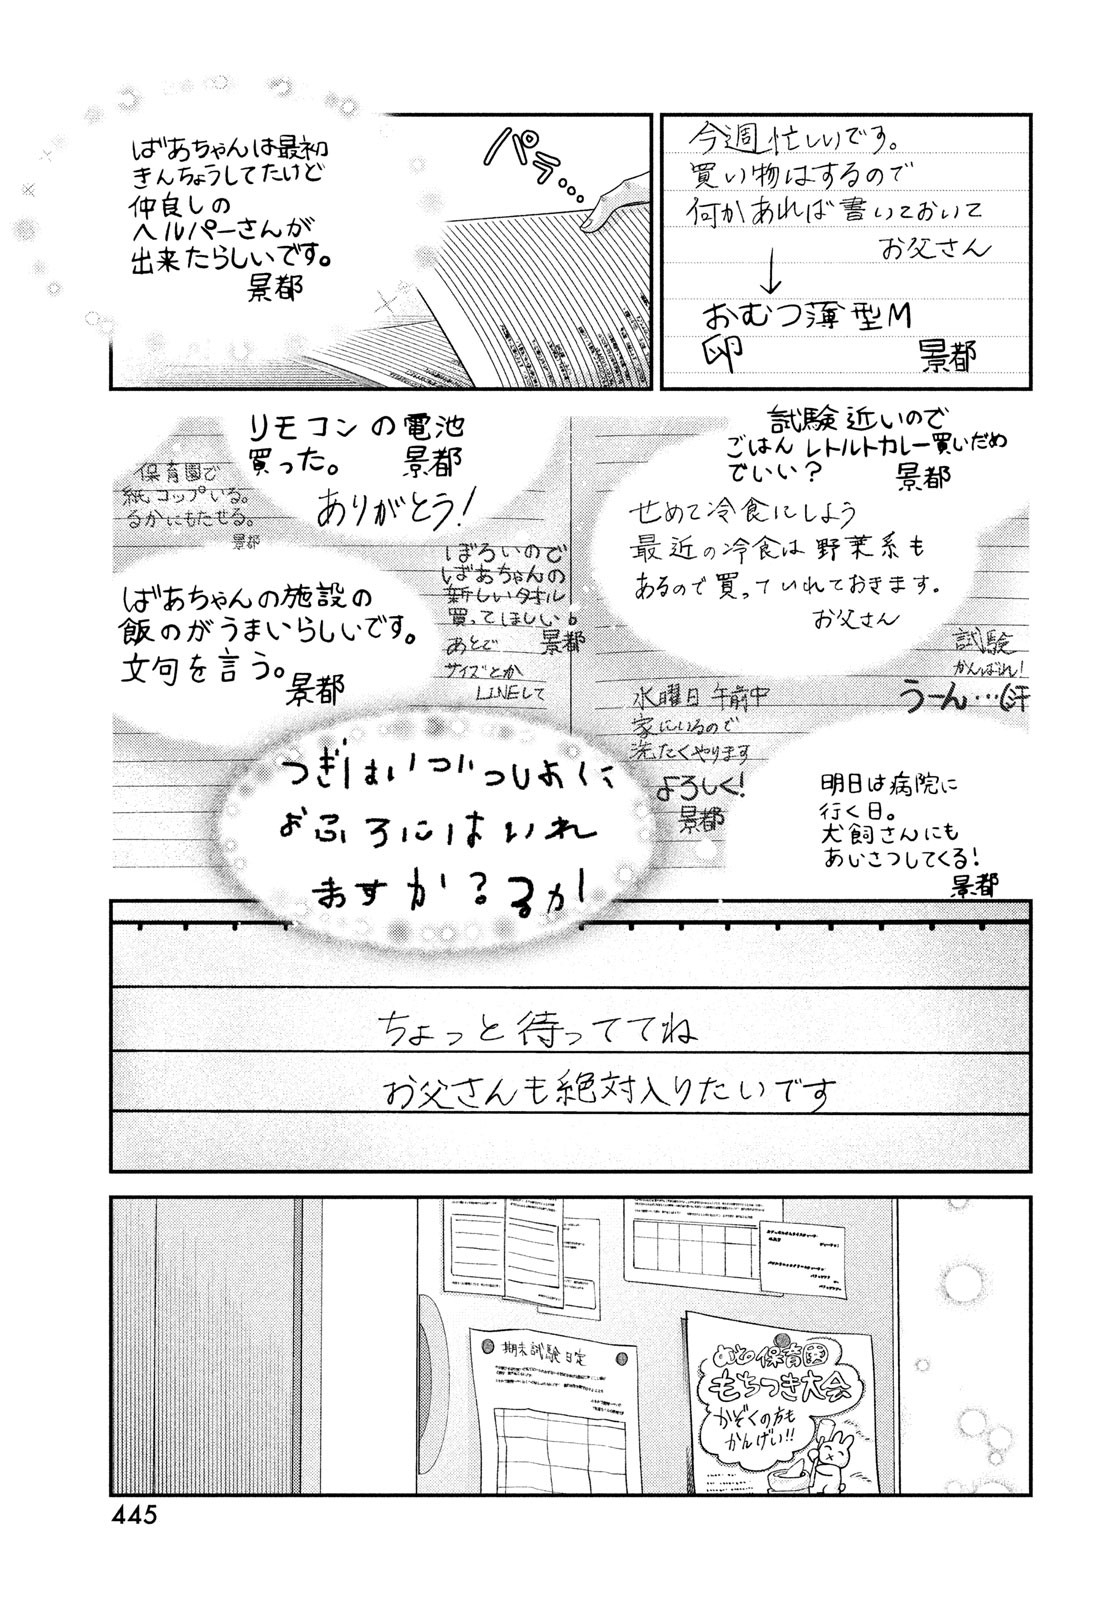 今週忙しいです。
買い物はするので
何かあれば書いておいて
お父さん
おむつ薄型M
卵
景都
パラ…
ばあちゃんは最初
きんちょうしてたけど
仲良しの
ヘルパーさんが
出来たらしいです。
景都
試験近いので
ごはん レトルトカレー買いだめ
でいい？
景都
せめて冷食にしよう
最近の冷食は野菜系も
あるので買っていれておきます。
お父さん
試験
がんばれ！
うーん…(汗
リモコンの電池
買った。
景都
ありがとう！
保育園で
紙コップいる。
るかにもたせる。
景都
ぼろいので
ばあちゃんの
新しいタオル
買ってほしい。
景都
あとで
サイズとか
LINEして
ばあちゃんの施設の
飯のがうまいらしいです。
文句を言う。
景都
水曜日 午前中
家にいるので
洗たくやります
よろしく！
景都
明日は病院に
行く日。
犬飼さんにも
あいさつしてくる！
景都
つぎはいついっしょに
おふろにはいれ
ますか？るか
ちょっと待っててね
お父さんも絶対入りたいです
期末試験日定
保育園
もちつき大会
かぞくの方も
かんげい!!
445